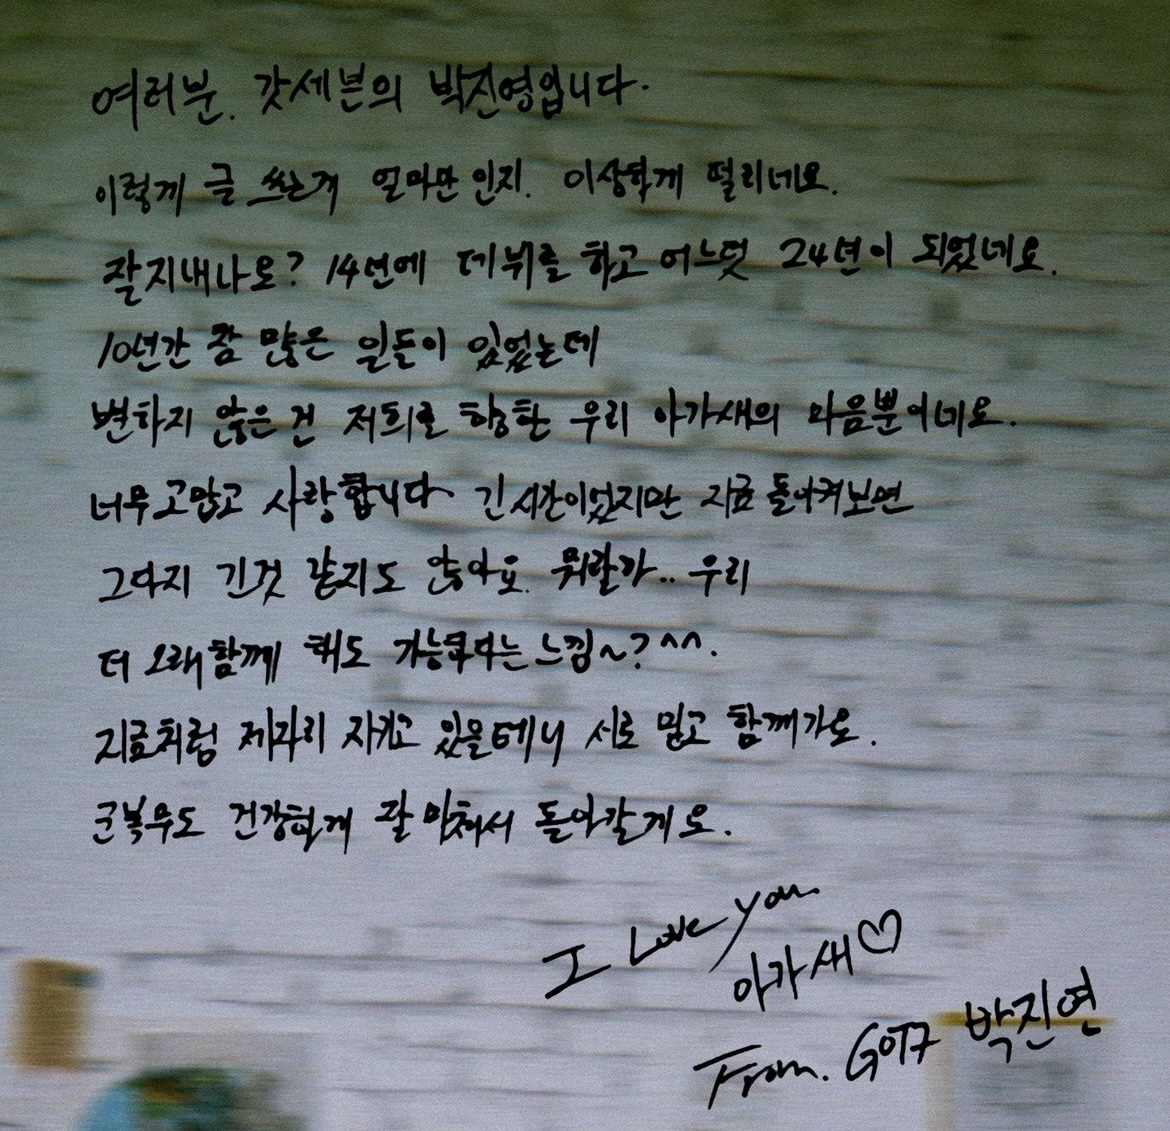 여러분. 갓세븐의 박진영입니다.
이렇게 글 쓰는게 얼마만 인지. 이상하게 떨리네요.
잘지내나요? 14년에 데뷔를 하고 어느덧 24년이 되었네요.
10년간 참 많은 일들이 있었는데
변하지 않은 건 저희를 향한 우리 아가새의 마음뿐이네요.
너무 고맙고 사랑합니다 긴 시간이었지만 지금 돌이켜보면
그다지 긴것 같지도 않아요. 뭐랄까.. 우리
더 오래 함께 해도 가능하다는 느낌~? ^^.
지금처럼 제자리 지키고 있을테니 서로 믿고 함께가요.
군복무도 건강하게 잘 마쳐서 돌아갈게요.
I Love you
아가새♡
From. GOT7 박진영